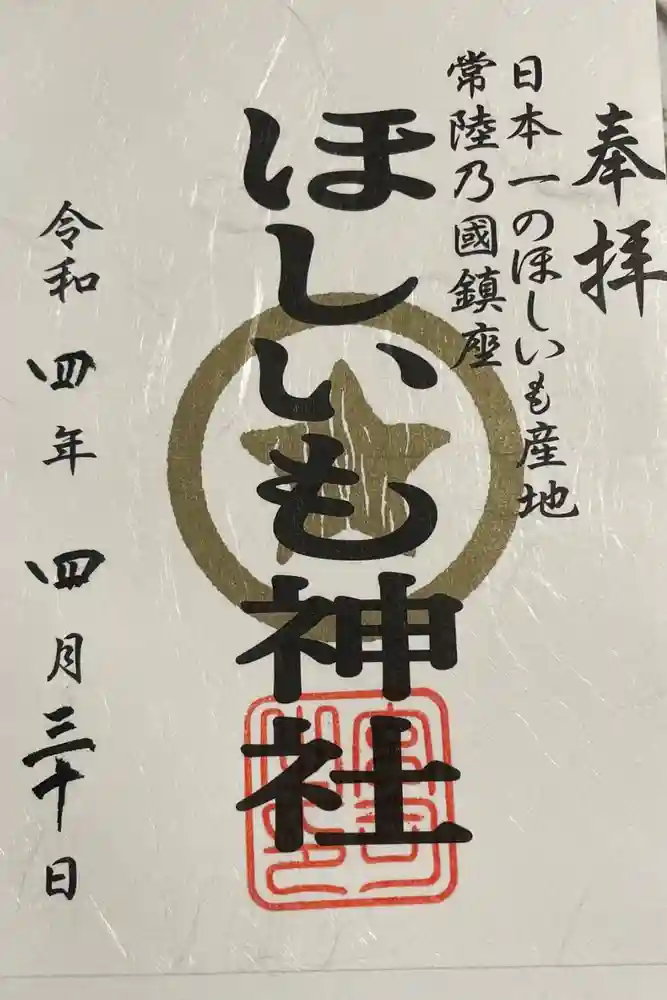 奉拝
日本一のほしいも産地
常陸乃國鎮座
ほしいも神社
令和四年四月三十日